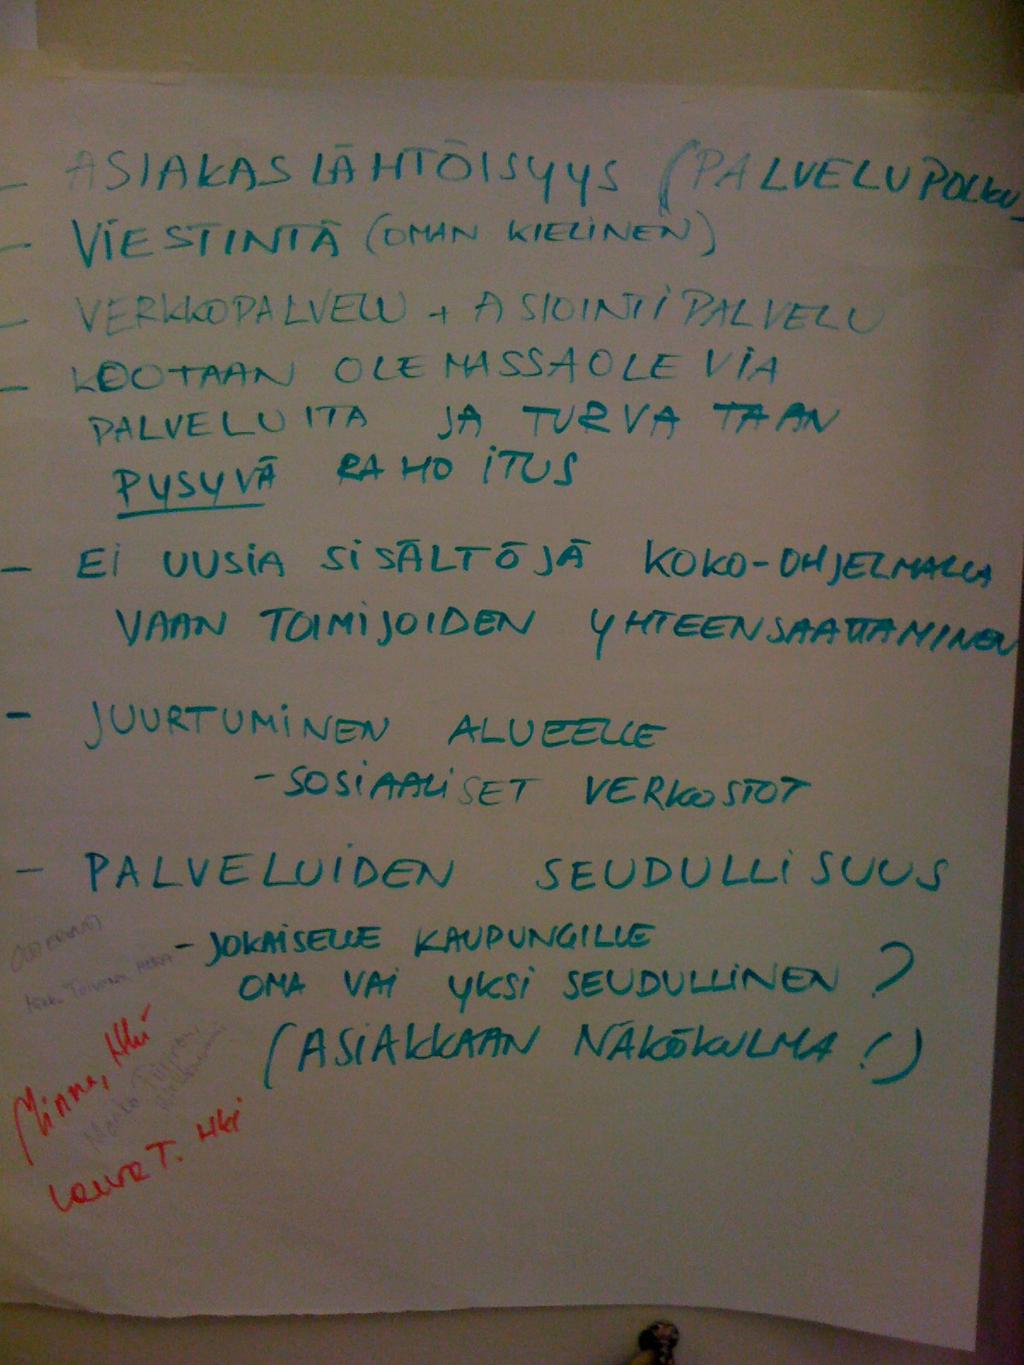 - ASIAKASLÄHTÖISYYS (PALVELUPOLKU)
- VIESTINTÄ (OMAN KIELINEN)
- VERKKOPALVELU + ASIOINTIPALVELU
- KOOTAAN OLEMASSAOLEVIA
PALVELUITA JA TURVATAAN
PYSYVÄ RAHOITUS
- EI UUSIA SISÄLTÖJÄ KOKO-OHJELMALLA
VAAN TOIMIJOIDEN YHTEENSAATTAMINEN
- JUURTUMINEN ALUEELLE
- SOSIAALISET VERKOSTOT
- PALVELUIDEN SEUDULLISUUS
- JOKAISELLE KAUPUNGILLE
OMA VAI YKSI SEUDULLINEN ?
(ASIAKKAAN NÄKÖKULMA !)
Minna, Hki
Laura T. Hki